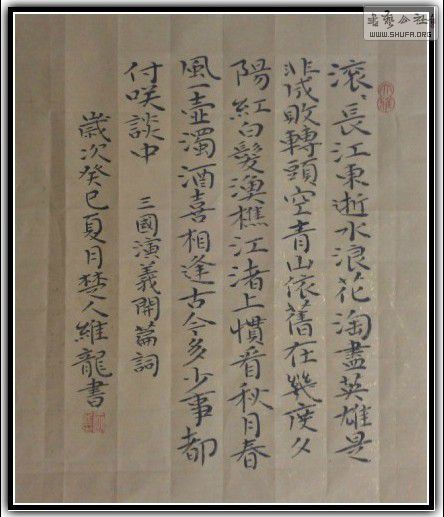 滚長江東逝水浪花淘盡英雄是
非成敗轉頭空青山依舊在幾度夕
陽紅白髮漁樵江渚上慣看秋月春
風一壺濁酒喜相逢古今多少事都
付咲談中 三國演義開篇詞
歲次癸巳夏月楚人維龍書
WWW.SHUFA.ORG